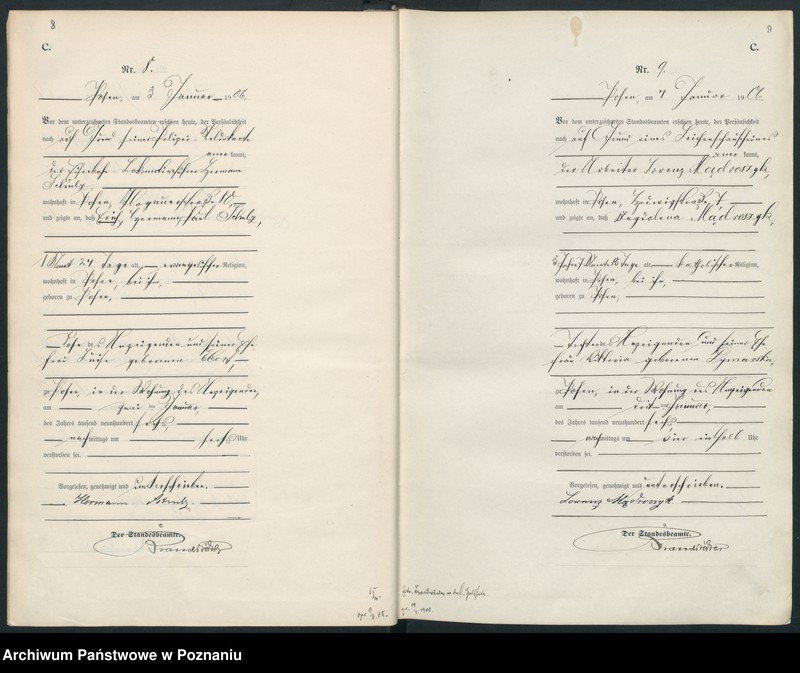 8
C.
Nr. 8.
Posen, am 3 Januar 1906.
Vor dem unterzeichneten Standesbeamten erschien heute, der Persönlichkeit
nach auf Grund seiner Polizei
kannt,
der Hermann
Schulz,
wohnhaft in Posen,
und zeigte an, daß Erich Hermann Paul Schulz,
1 Monat 24 Tage alt, evangelischer Religion,
wohnhaft in Posen, bei ihm,
geboren zu Posen,
Sohn des Anzeigenden und seiner Ehe-
frau Luise geborenen
zu Posen, in der Wohnung des Anzeigenden,
am zwei ten Januar
des Jahres tausend neunhundert sechs
nachmittags um sechs Uhr
verstorben sei.
Vorgelesen, genehmigt und unterschrieben.
Hermann Schulz
Der Standesbeamte.
Brandstäter
9
C.
Nr. 9.
Posen, am 4 Januar 1906.
Vor dem unterzeichneten Standesbeamten erschien heute, der Persönlichkeit
nach auf Grund eines Leichenschauscheines
kannt,
der Arbeiter Lorenz Mądroszyk,
wohnhaft in Posen, 7
und zeigte an, daß Magdalena Mądroszyk,
5 Jahre 7 Monate Tage alt, katholischer Religion,
wohnhaft in Posen, bei ihm,
geboren zu Posen,
Tochter des Anzeigenden und seiner Ehe-
frau Viktoria geborenen
zu Posen, in der Wohnung des Anzeigenden
am drit ten Januar,
des Jahres tausend neunhundert sechs
nachmittags um vier einhalb Uhr
verstorben sei.
Vorgelesen, genehmigt und unterschrieben.
Lorenz Mądroszyk
Der Standesbeamte.
Brandstäter
Archiwum Państwowe w Poznaniu